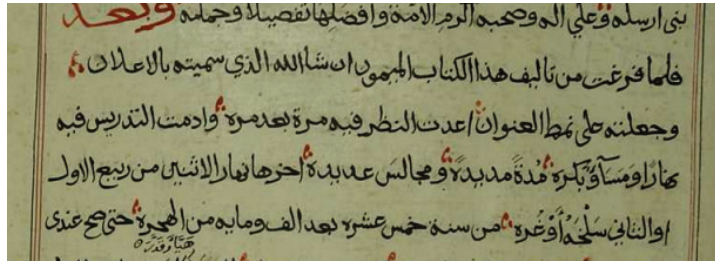 نبي ارسله وعلي اله وصحبه اكرم الامة وافضلها تفصيلا وجمله وبعد
فلما فرغت من تاليف هذا الكتاب الميمون ان شاالله الذي سميته بالاعلان
وجعلته على نمط العنوان اعدت النظر فيه مرة بعد مره وادمت التدريس فيه
نهارا ومسآ وبكرة مُدةً مديدةً ومجالس عديدة اخرها نهار الاثنين من ربيع الاول
اوالثاني سَلْخَهُ أَوْ غُرة من سنة خمس عشره بعد الف ومايه من الهجرة حتى صح عندى